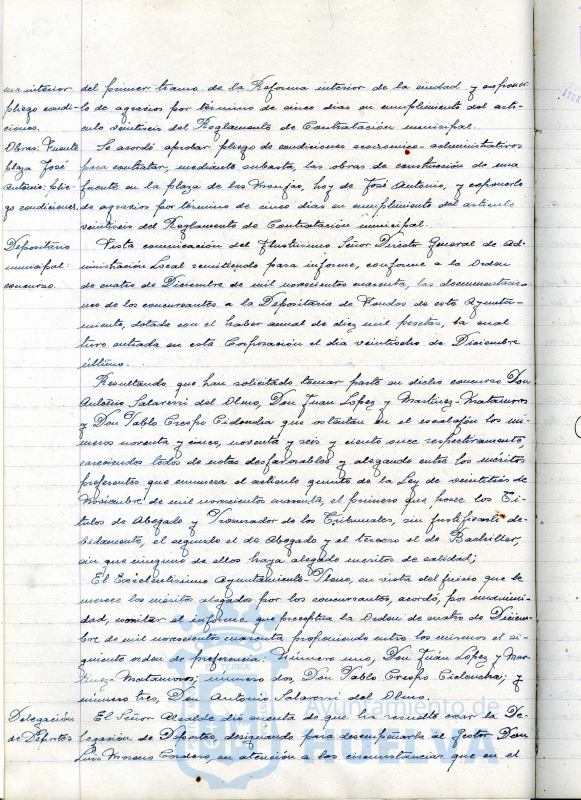 ma interior
pliego condi-
ciones.
Obras: Fuente
plaza José
Antonio: plie-
go condiciones.
del primer tramo de la Reforma interior de la ciudad y exponer-
lo de agravios por término de cinco días en cumplimiento del artí-
culo veintiseis del Reglamento de Contratación municipal.
Se acordó aprobar pliego de condiciones económico-administrativas
para contratar, mediante subasta, las obras de construcción de una
fuente en la plaza de las Monjas, hoy de José Antonio, y exponerlo
de agravios por término de cinco días en cumplimiento del artículo
veintiseis del Reglamento de Contratación municipal.
Depositario
municipal:
concurso.
Vista comunicación del Ilustrísimo Señor Director General de Ad-
ministración Local remitiendo para informe, conforme a la Orden
de cuatro de Diciembre de mil novecientos cuarenta, las documentacio-
nes de los concursantes a la Depositaría de Fondos de este Ayunta-
miento, dotada con el haber anual de diez mil pesetas, la cual
tuvo entrada en esta Corporación el día veintiocho de Diciembre
último.
Resultando que han solicitado tomar parte en dicho concurso Don
Antonio Salarrri del Olmo, Don Juan Lopez y Martinez-Matamoros
y Don Pablo Crespo Cidondra que ostentan en el escalafón los nú-
meros noventa y cinco, noventa y seis y ciento once respectivamente,
careciendo todos de notas desfavorables y alegando entre los méritos
preferentes que enumera el artículo quinto de la Ley de veintitres de
Noviembre de mil novecientos cuarenta, el primero que posee los Tí-
tulos de Abogado y Procurador de los Tribunales, sin justificarlo de-
bidamente, el segundo el de Abogado y el tercero el de Bachiller,
sin que ninguno de ellos haya alegado méritos de calidad;
El Excelentísimo Ayuntamiento Pleno, en vista del juicio que le
merece los méritos alegados por los concursantes, acordó, por unanimi-
dad, emitir el informe que preceptúa la Orden de cuatro de Diciem-
bre de mil novecientos cuarenta proponiendo entre los mismos el si-
guiente orden de preferencia: Número uno, Don Juan Lopez y Mar-
tinez Matamoros; número dos, Don Pablo Crespo Cidondra; y
número tres, Don Antonio Salarrri del Olmo.
Delegación
de Deportes
El Señor Alcalde dió cuenta de que ha resuelto crear la De-
legación de Deportes, designando para desempeñarla al Gestor Don
Luis Moreno Cordero, en atención a las circunstancias que en el
Ayuntamiento de
HUELVA